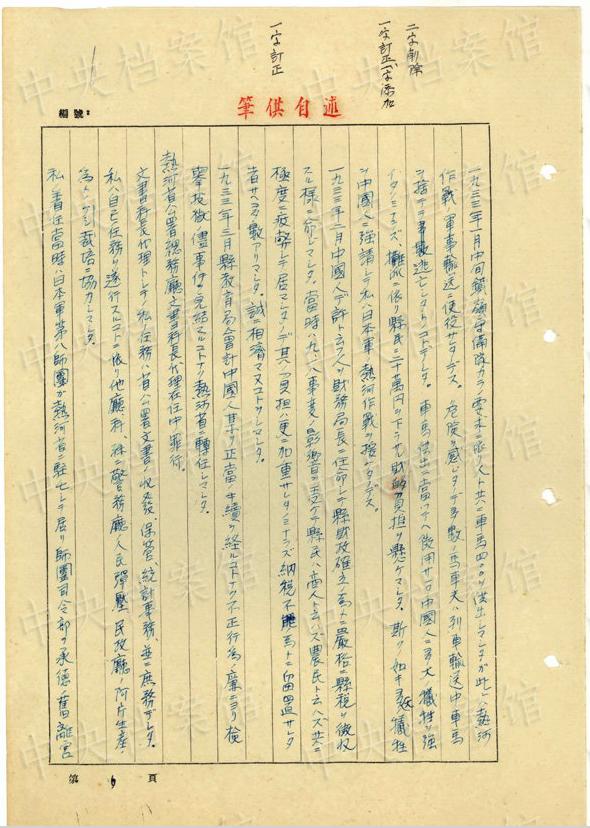 二字削除
一字訂正一字添加
一字訂正
筆供自述
編號:
一九三三年二月中旬賀領守備隊カラノ要求ニ依リ人ト共ニ車馬四〇〇ヲ供出シマシタガ此レハ熱河
作戦ノ軍事輸送ニ使役サレタデス。危険ヲ感ジタデ多数ノ馬車夫ハ列車輸送中車馬
ヲ捨テテ逃亡シタトノコトデシタ。車馬供出ニ当ツテハ使用サレル中国人ニ多大ノ犠牲ヲ強
イタノミナラズ、攤派ニ依リ県民ニ二十萬円ヲ下ラヌ財的負担ヲ懸ケマシタ。斯クノ如キ犠牲
ヲ中国人ニ強請シテ私ハ日本軍ノ熱河作戦ヲ援ケタデス。
一九三三年二月中国人デ許ト云フ人ヲ財務局長ニ任命シテ県財政確立ノ為トニ厳格ニ県税ヲ徴収
スル様ニ命ジマシタ。當時九、一八事変ノ影響ヲ受ケテ県民ハ商人ト云ハズ農民ト云ハズ共ニ
極度ニ疲労シテ居マシタノデ其ノ負担ハ更ニ加重サレタノミナラズ納税不能ノ為トニ留置サレタ
者サヘ多数アリマシタ。誠ニ相済マヌコトヲシマシタ。
一九三三年三月県教育局会計中国人某ヲ正當ノ手続ヲ経ルコトナク不正行為ノ廉ニヨリ検
挙投獄ノ儘事件ノ完結マルコトナク熱河省ニ轉任シマシタ。
熱河省公署総務廳文書科長代理在任中ノ罪行。
文書科長代理トシテノ私ノ任務ハ省公署文書ノ收發、保管、統計事務、並ニ庶務デシタ。
私ハ自己ノ任務ヲ遂行スルコトニ依リ他廳科、殊ニ警務廳ノ人民彈壓、民政廳ノ阿片生産ノ
為トノケシ栽培ニ協力シマシタ。
私ノ着任當時ハ日本軍第八師團ガ熱河省ニ駐屯シテ居リ師團司令部ヲ承徳舊離宮
第 9 頁
中央档案馆